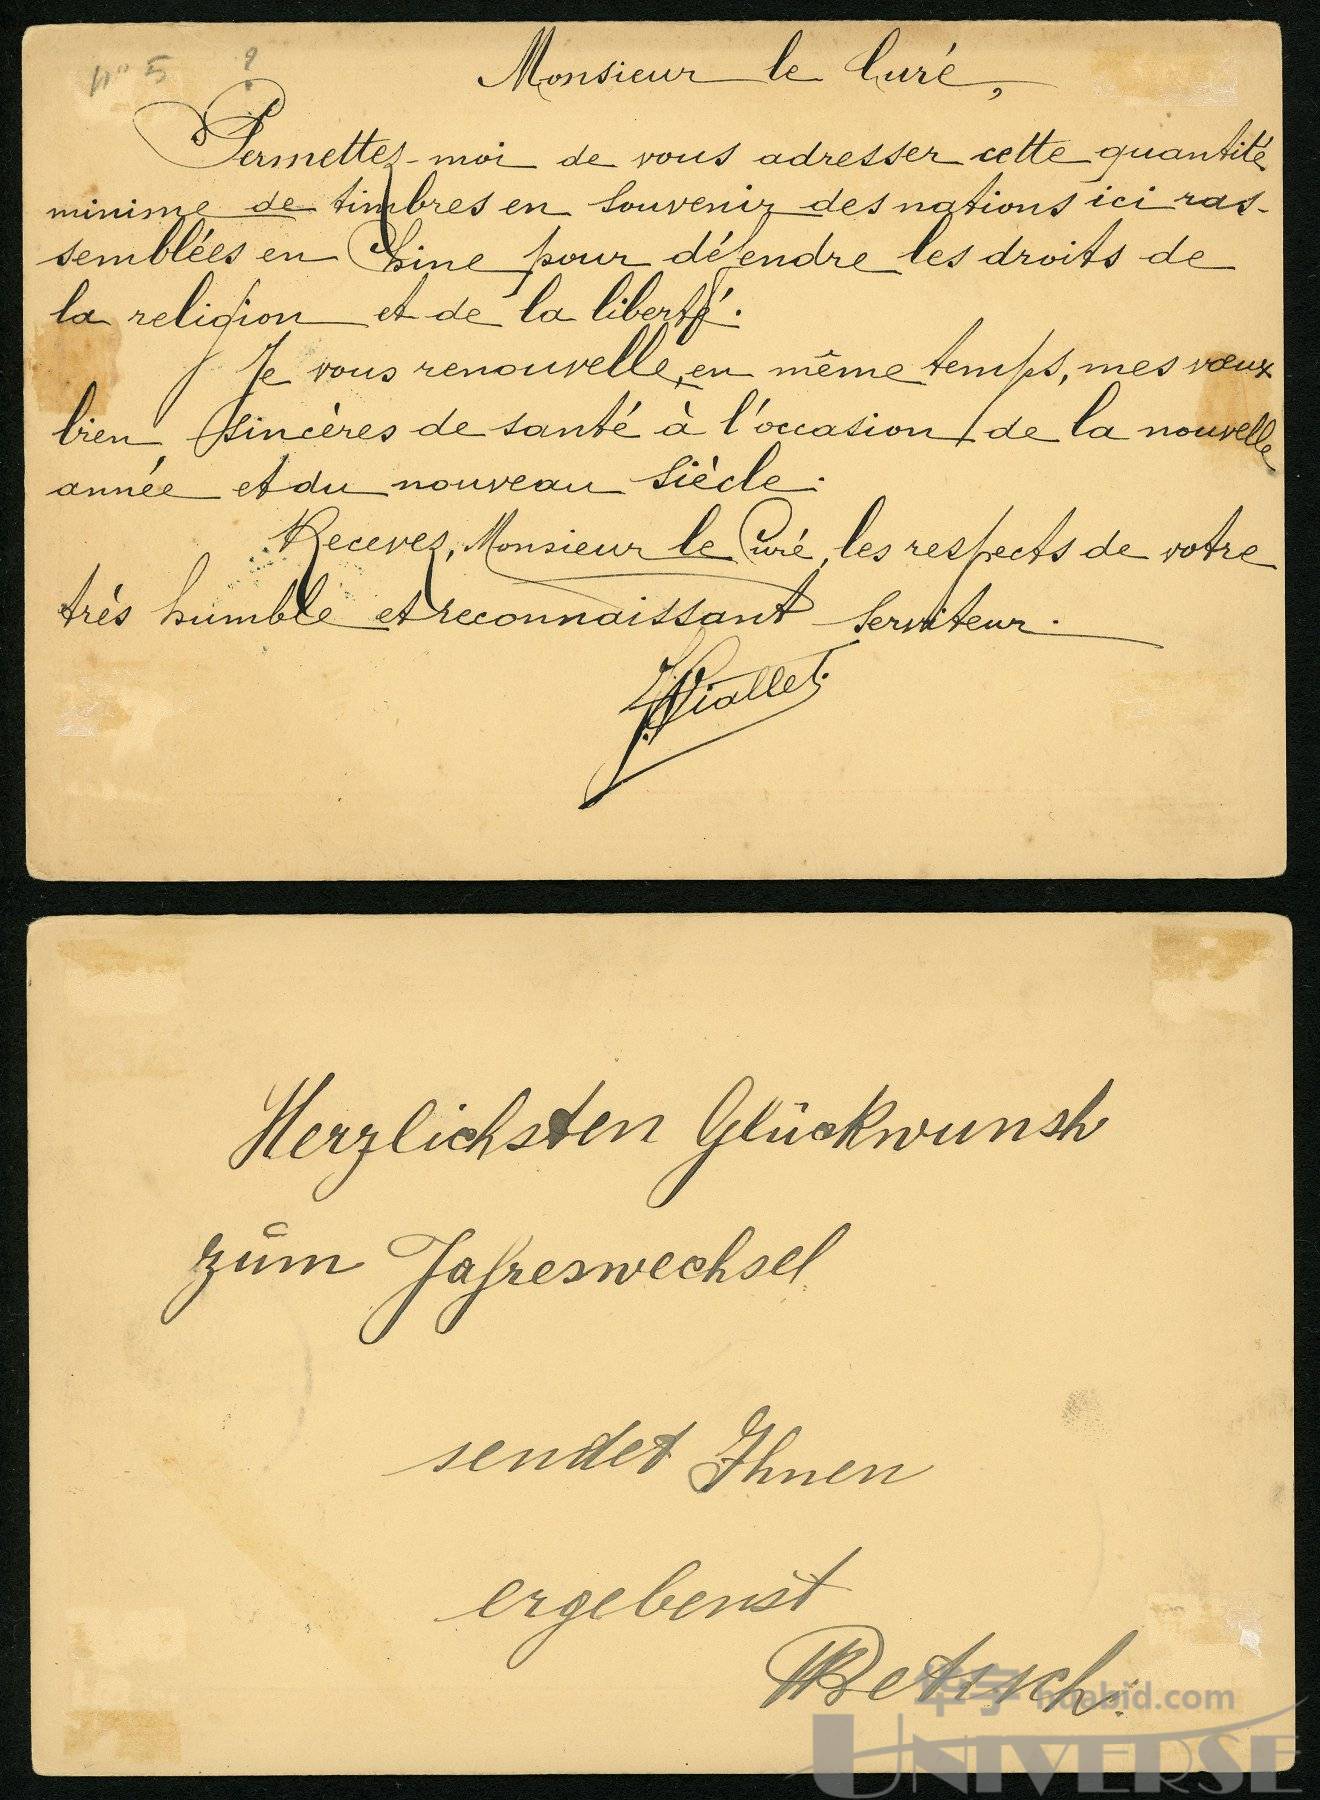 no 5 ?
Monsieur le Curé,
Permettez-moi de vous adresser cette quantité
minime de timbres en souvenir des nations ici ras-
semblées en Chine pour défendre les droits de
la religion et de la liberté.
Je vous renouvelle, en même temps, mes vœux
bien sincères de santé à l'occasion de la nouvelle
année et du nouveau siècle.
Recevez, Monsieur le Curé, les respects de votre
très humble et reconnaissant serviteur.
J. Viallet
Herzlichsten Glückwunsh
zum Jahreswechsel
sendet Ihnen
ergebenst
华宇 huabid.com
UNIVERSE